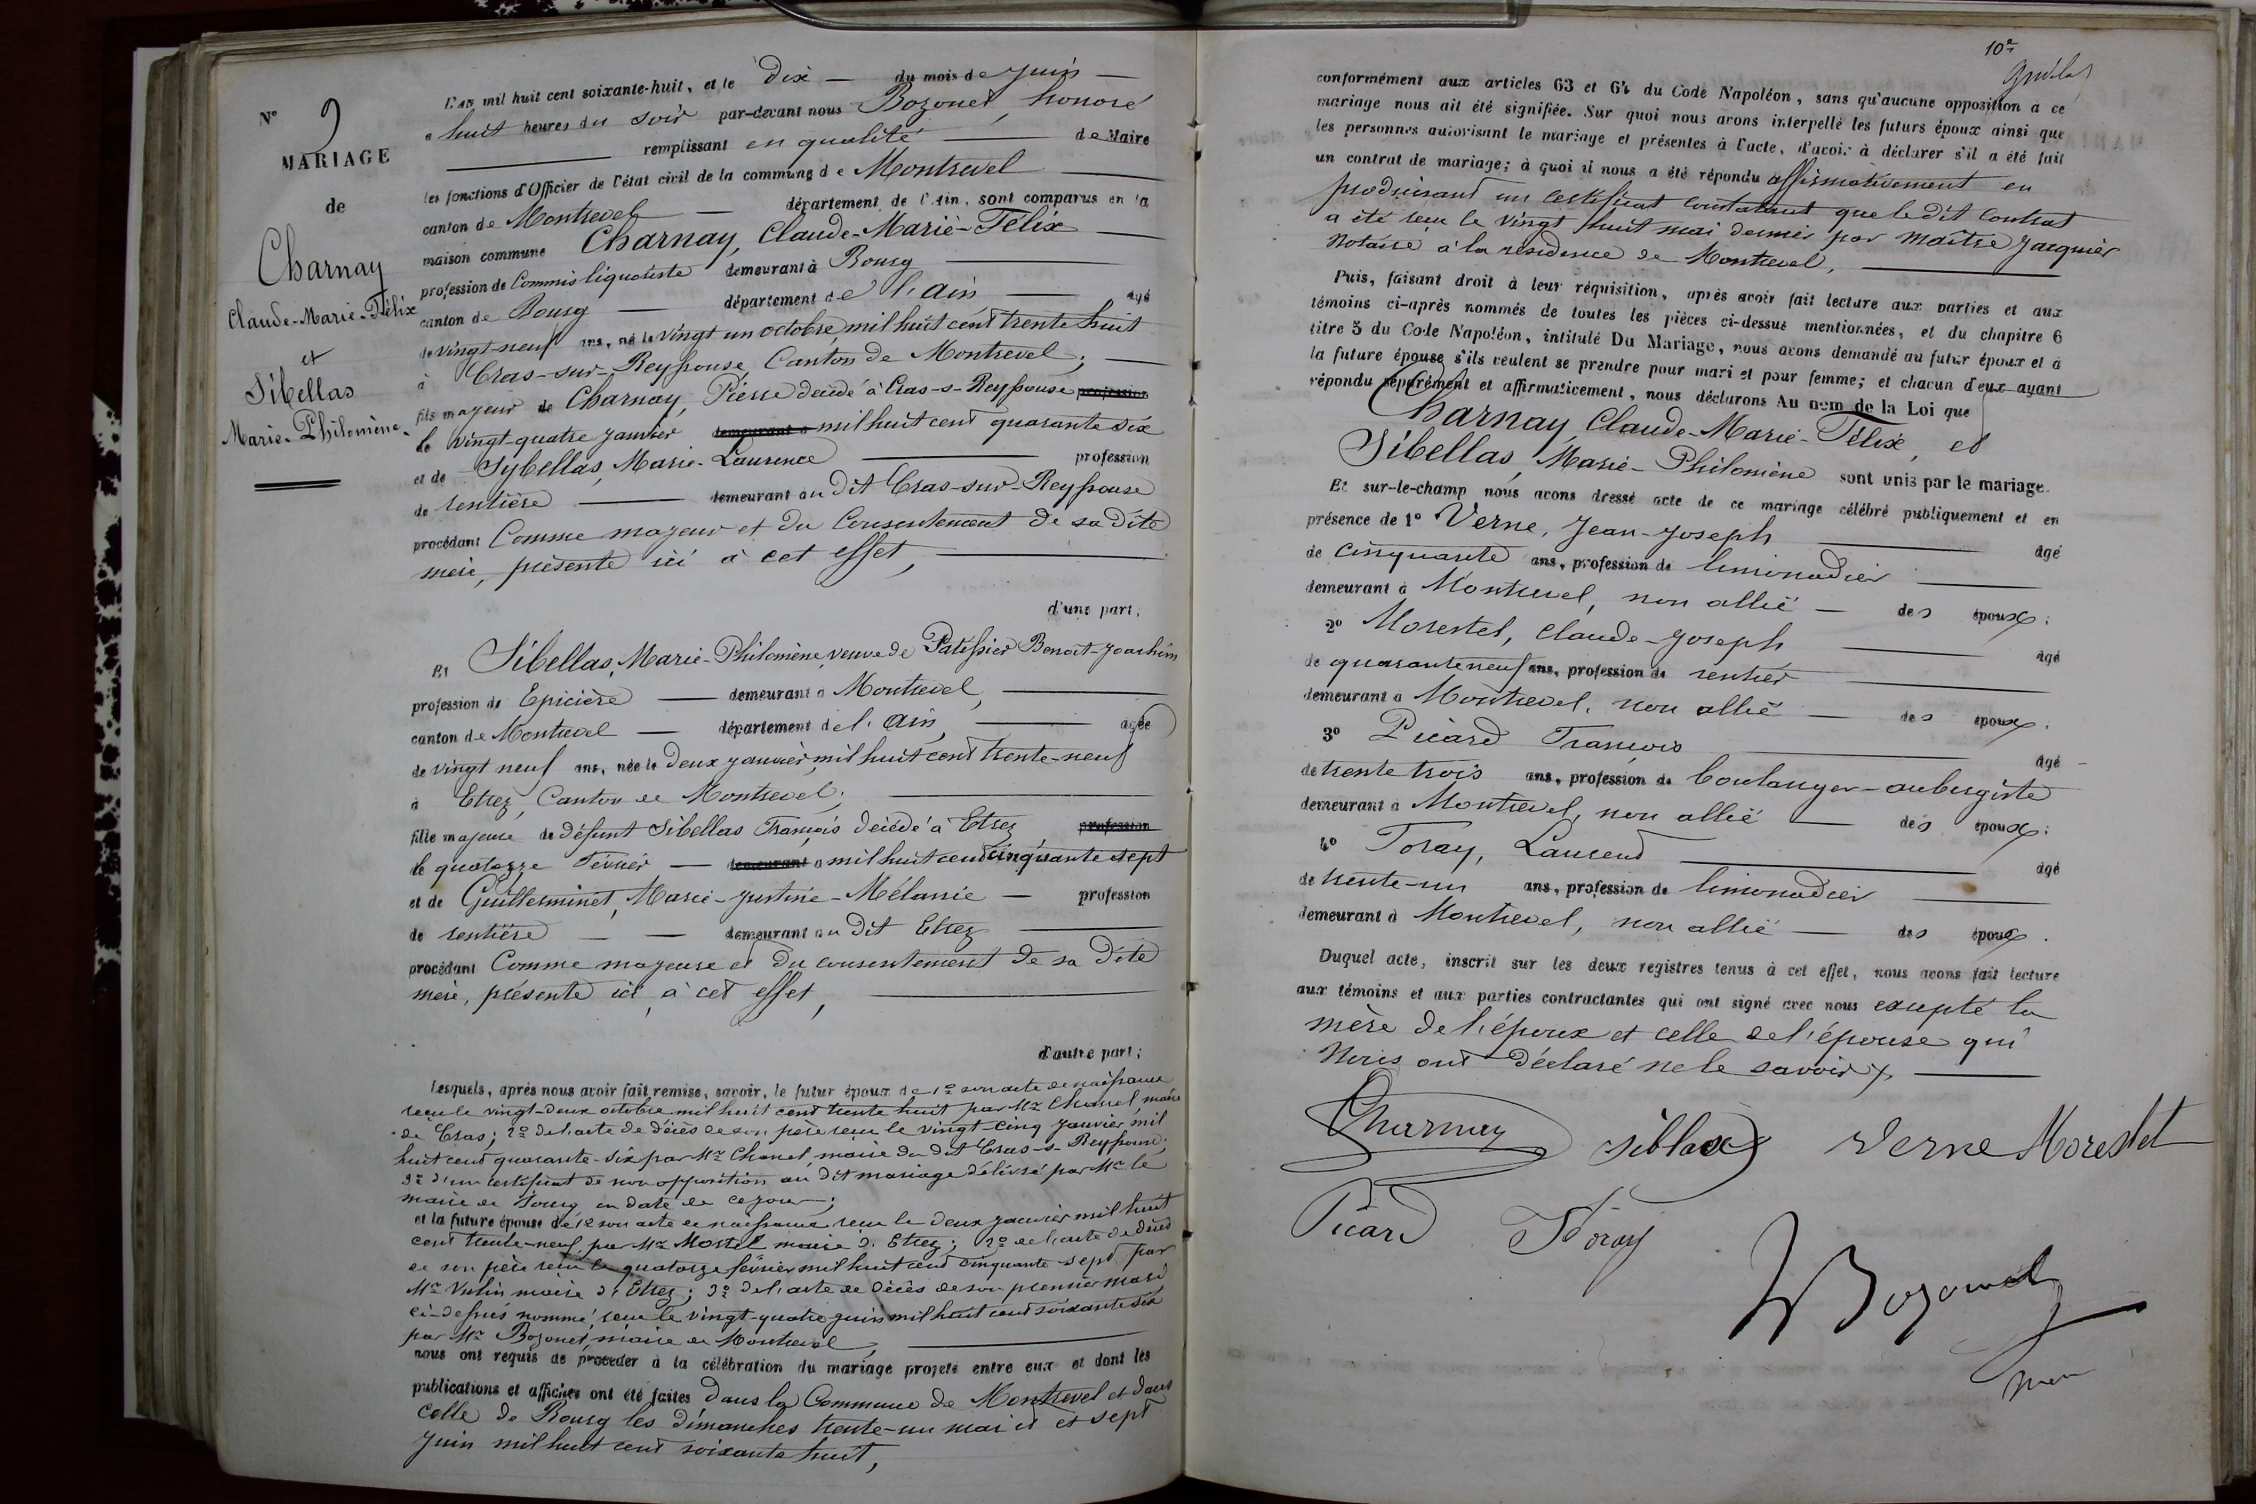 N° 9
MARIAGE
de
Charnay
Claude-Marie-Félix
et
Sibellas
Marie-Philomène.
L'an mil huit cent soixante-huit, et le dix du mois de juin
à huit heures du soir par-devant nous Bozonet, honoré
remplissant en qualité de Maire
les fonctions d'Officier de l'état civil de la commune de Montrevel
canton de Montrevel département de l'Ain, sont comparus en la
maison commune Charnay, Claude-Marie-Félix
profession de Commis liquoriste demeurant à Bourg
canton de Bourg département de l'ain agé
de vingt-neuf ans, né le vingt un octobre mil huit cent trente huit
à Cras-sur-Reyssouse, Canton de Montrevel;
fils majeur de Charnay, Pierre décédé à Cras-s-Reyssouse profession
le vingt-quatre janvier demeurant à mil huit cent quarante six
et de Sybellas, Marie-Laurence profession
de rentière demeurant au dit Cras-sur-Reyssouse
procédant Comme majeur et du Consentement de sa dite
mère, présente ici à cet effet,
d'une part;
Et Sibellas, Marie-Philomène, veuve de Patissier Benoit-Joachim
profession de Epicière demeurant à Montrevel,
canton de Montrevel département de l'ain, agée
de vingt neuf ans, née le deux janvier mil huit cent trente-neuf
à Etrez, Canton de Montrevel;
fille majeure de défunt Sibellas François décédé à Etrez profession
le quatorze février demeurant à mil huit cent cinquante sept
et de Guillerminet, Marie-Justine-Mélanie profession
de rentière demeurant au dit Etrez
procédant Comme majeure et du consentement de sa dite
mère, présente ici à cet effet,
d'autre part;
Lesquels, après nous avoir fait remise, savoir, le futur époux de 1° son acte de naissance
reçu le vingt-deux octobre mil huit cent trente huit par Mr Chanel, maire
de Cras; 2° de l'acte de décès de son père reçu le vingt-cinq janvier mil
huit cent quarante-six par Mr Chanel, maire du dit Cras-s-Reyssouse;
3° d'un certificat de non opposition au dit mariage délivré par Mr le
maire de Bourg en date de ce jour;
et la future épouse de 1° son acte de naissance reçu le deux janvier mil huit
cent trente-neuf, par Mr Mostel maire d'Etrez; 2° de l'acte de décès
de son père reçu le quatorze février mil huit cent cinquante sept par
Mr Vulin maire d'Etrez; 3° de l'acte de décès de son premier mari
ci-dessus nommé, reçu le vingt-quatre juin mil huit cent soixante six
par Mr Bozonet, maire de Montrevel,
nous ont requis de procéder à la célébration du mariage projeté entre eux et dont les
publications et affiches ont été faites dans la Commune de Montrevel et dans
celle de Bourg les dimanches trente-un mai et et sept
juin mil huit cent soixante huit,
10e
conformément aux articles 63 et 64 du Code Napoléon, sans qu'aucune opposition à ce
mariage nous ait été signifiée. Sur quoi nous avons interpellé les futurs époux ainsi que
les personnes autorisant le mariage et présentes à l'acte, d'avoir à déclarer s'il a été fait
un contrat de mariage; à quoi il nous a été répondu affirmativement en
produisant un certificat constatant que le dit contrat
a été reçu le vingt huit mai dernier par maître Jacquier
notaire à la résidence de Montrevel,
Puis, faisant droit à leur réquisition, après avoir fait lecture aux parties et aux
témoins ci-après nommés de toutes les pièces ci-dessus mentionnées, et du chapitre 6
titre 5 du Code Napoléon, intitulé Du Mariage, nous avons demandé au futur époux et à
la future épouse s'ils veulent se prendre pour mari et pour femme; et chacun d'eux ayant
répondu séparément et affirmativement, nous déclarons Au nom de la Loi que
Charnay, Claude-Marie-Félix, et
Sibellas, Marie-Philomène sont unis par le mariage.
Et sur-le-champ nous avons dressé acte de ce mariage célébré publiquement et en
présence de 1° Verne, Jean-Joseph agé
de cinquante ans, profession de limonadier
demeurant à Montrevel, non allié des époux;
2° Morestel, Claude-Joseph agé
de quarante neuf ans, profession de rentier
demeurant à Montrevel, non allié des époux.
3° Picard François agé
de trente trois ans, profession de boulanger-aubergiste
demeurant à Montrevel, non allié des époux;
4° Foray, Laurent agé
de trente-un ans, profession de limonadier
demeurant à Montrevel, non allié des époux.
Duquel acte, inscrit sur les deux registres tenus à cet effet, nous avons fait lecture
aux témoins et aux parties contractantes qui ont signé avec nous excepté la
mère de l'époux et celle de l'épouse qui
nous ont déclaré ne le savoir.
Charnay Siblas Verne Morestel
Picard Foray
H Bozonet